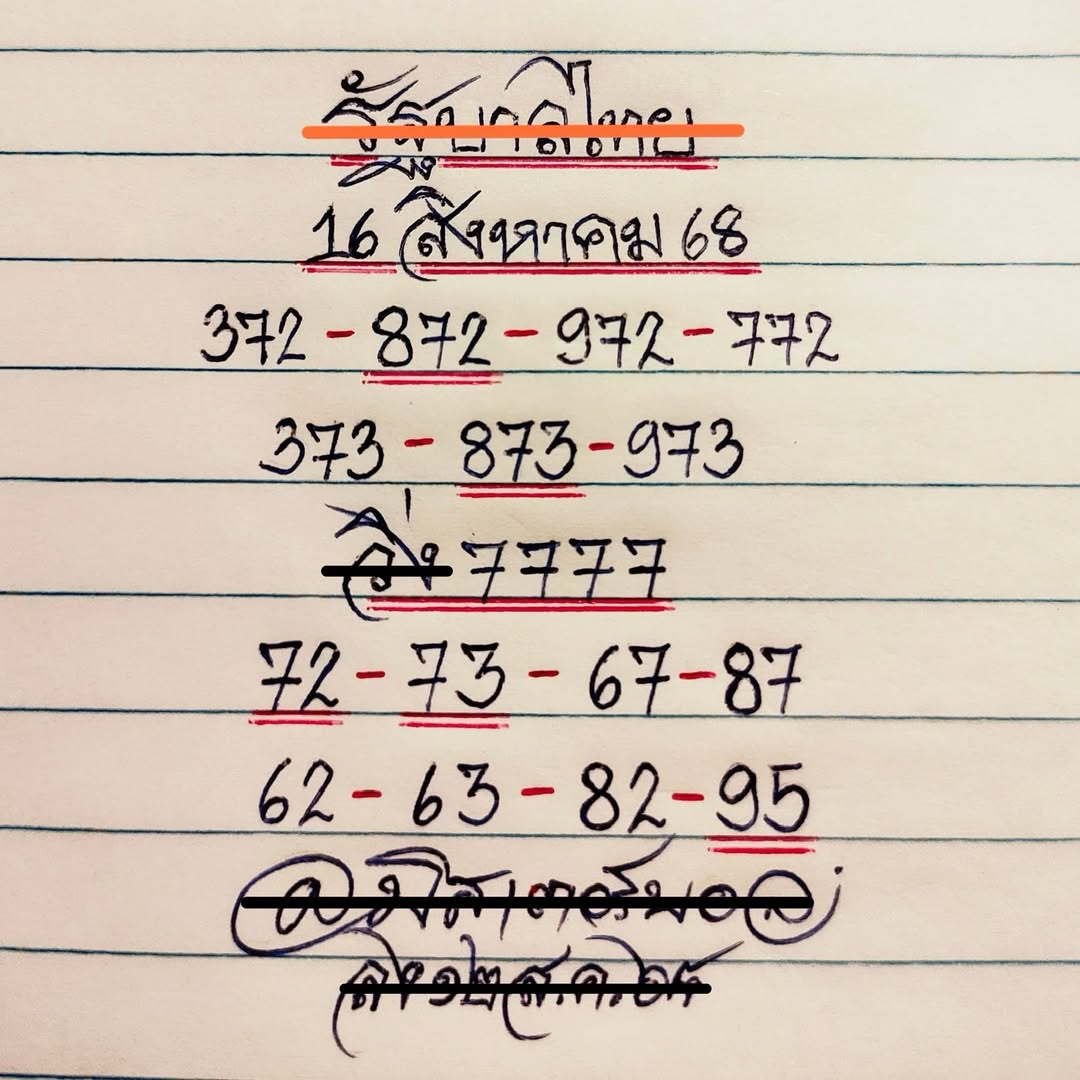 รัฐบาลไทย
16 สิงหาคม 68
372 - 872 - 972 - 772
373 - 873 - 973
วิ่ง 7777
72 - 73 - 67 - 87
62 - 63 - 82 - 95
ส.ค.